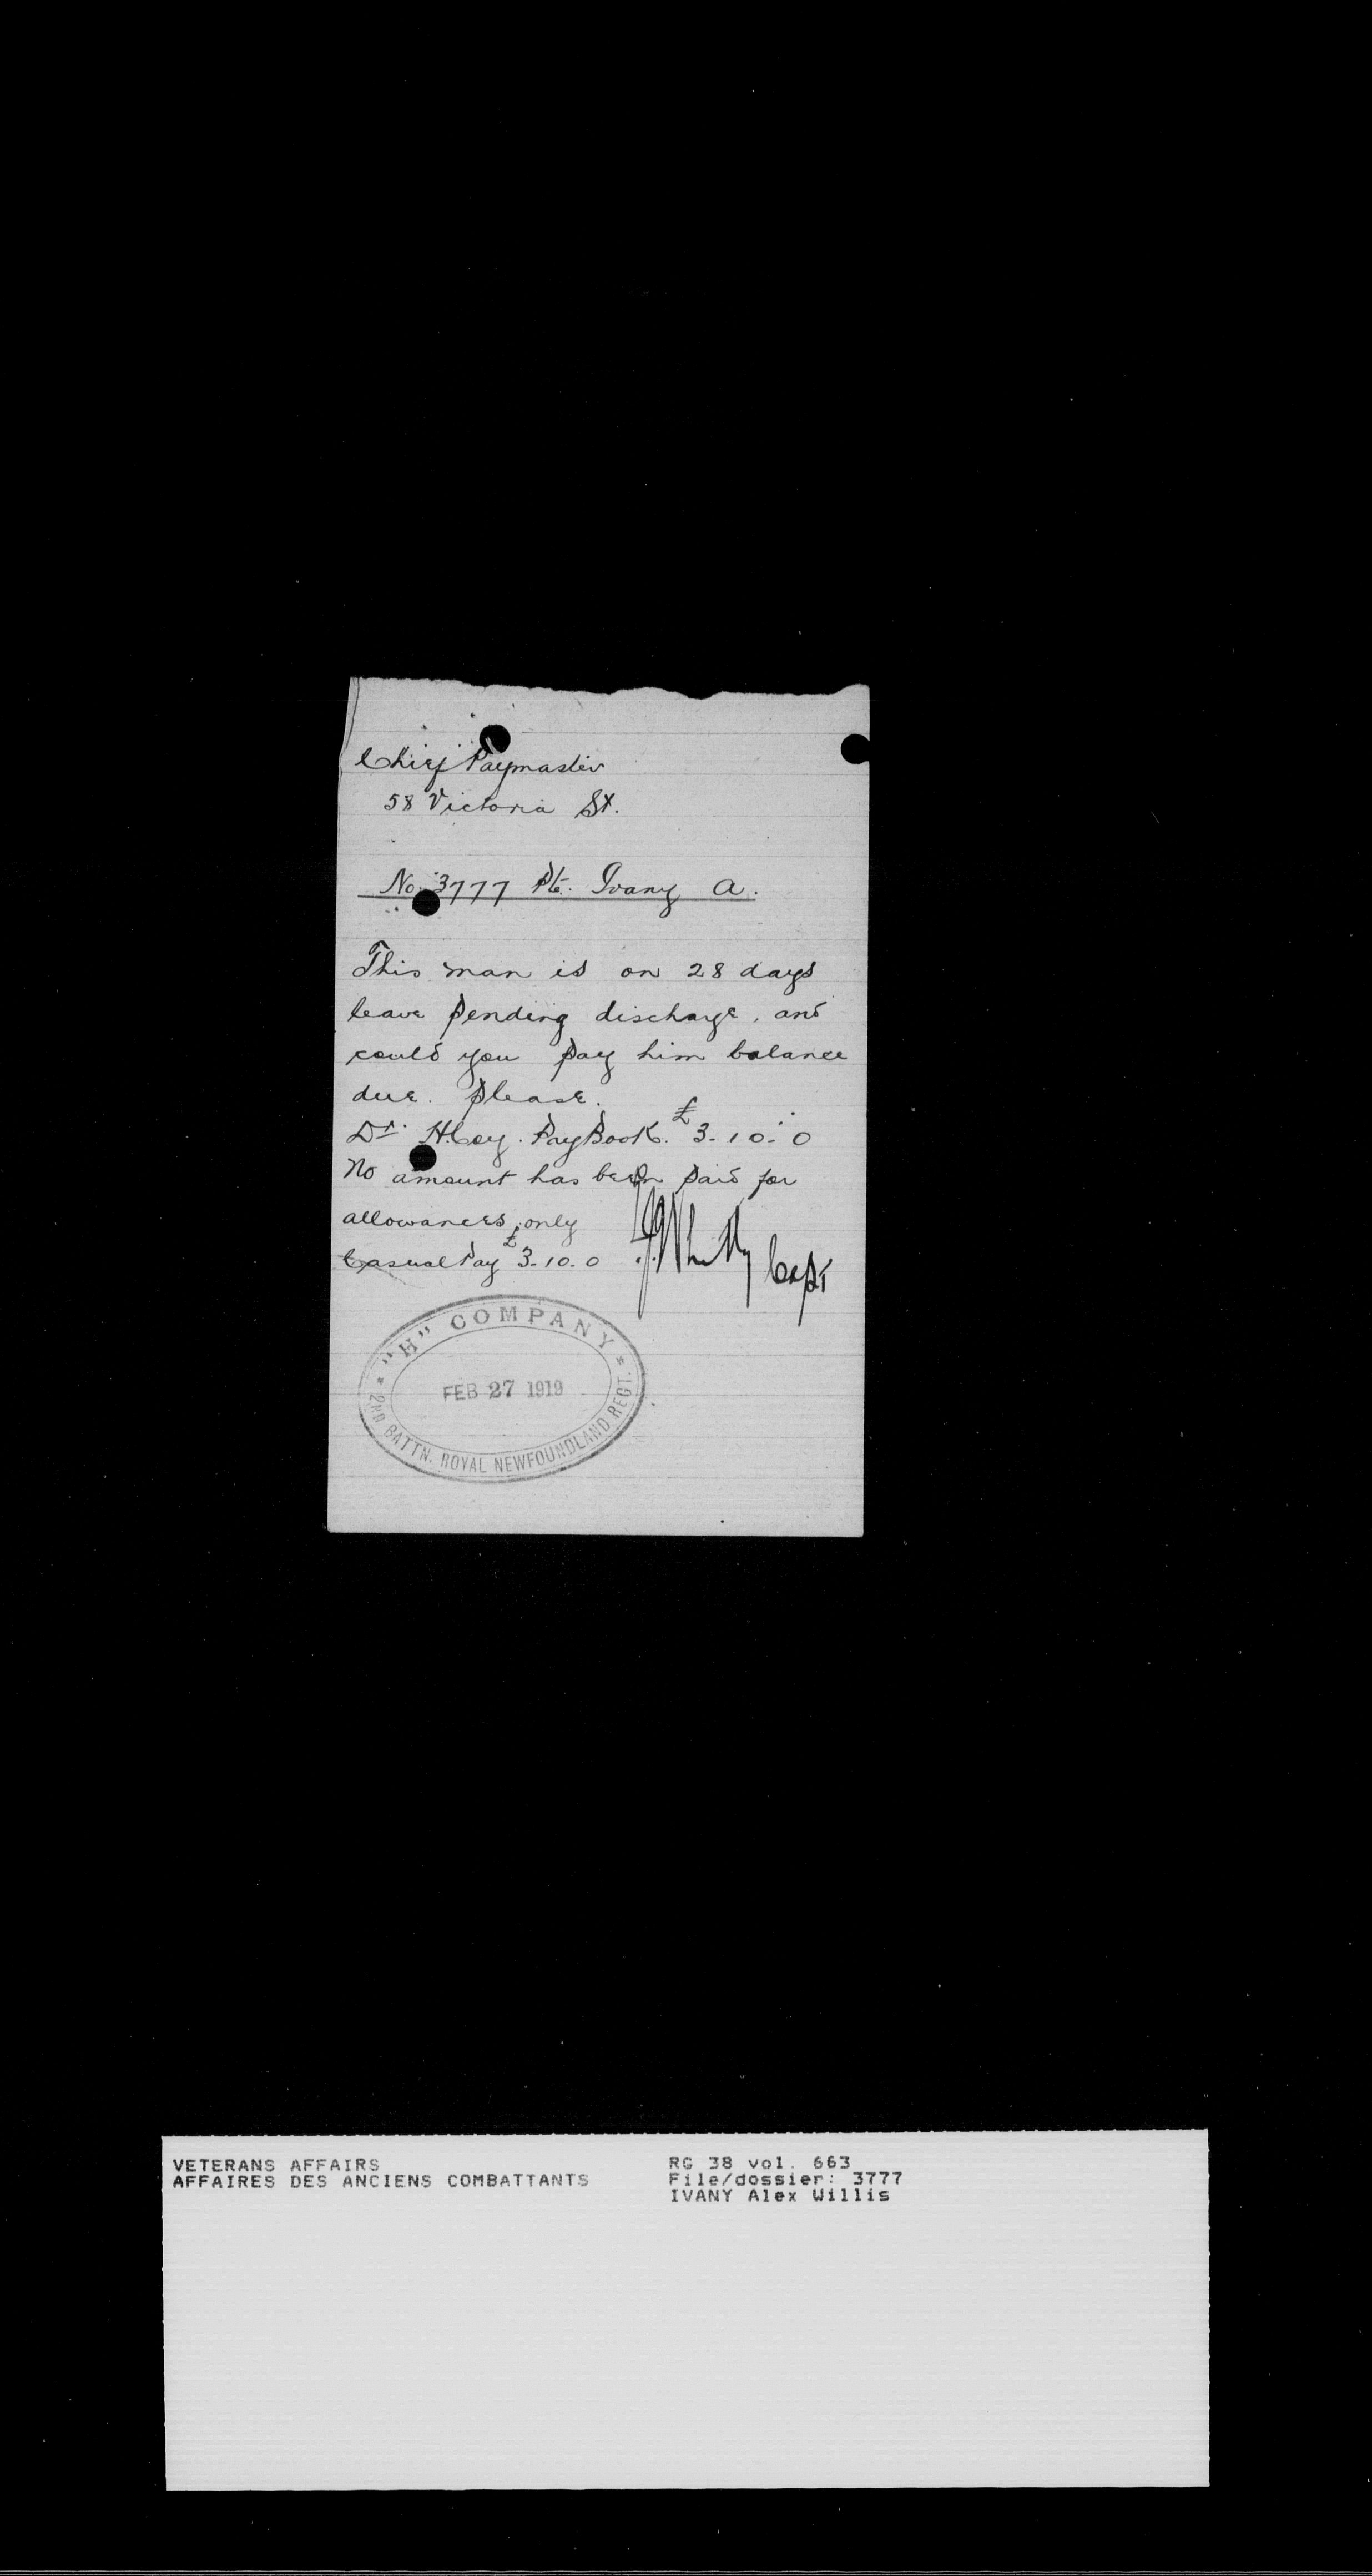 Chief Paymaster
58 Victoria St.
No. 3777 Pte. Ivany A.
This man is on 28 days
leave pending discharge, and
could you pay him balance
due. please.
Dr. H. Coy. Pay Book. £3-10-0
No amount has been paid for
allowances, only
Casual Pay £3-10-0
Capt
"H" COMPANY
FEB 27 1919
2ND BATTN. ROYAL NEWFOUNDLAND REGT.
VETERANS AFFAIRS
AFFAIRES DES ANCIENS COMBATTANTS
RG 38 vol. 663
File/dossier: 3777
IVANY Alex Willis